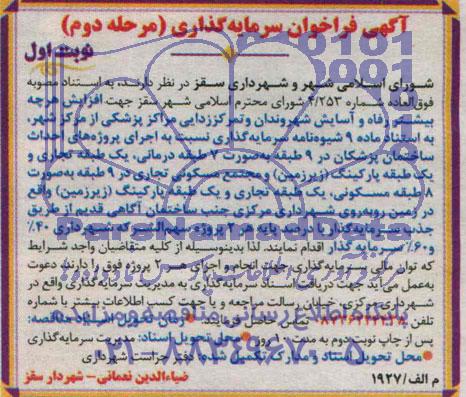 آگهی فراخوان سرمایه‌گذاری (مرحله دوم)
نوبت اول
شورای اسلامی شهر و شهرداری سقز در نظر دارند، به استناد مصوبه
فوق‌العاده شماره ۴/۲۵۳ شورای محترم اسلامی شهر سقز جهت افزایش هرچه
بیشتر رفاه و آسایش شهروندان و تمرکززدایی مراکز پزشکی از مرکز شهر،
به استناد ماده ۹ شیوه‌نامه سرمایه‌گذاری نسبت به اجرای پروژه‌های احداث
ساختمان پزشکان در ۹ طبقه به‌صورت ۷ طبقه درمانی، یک طبقه تجاری و
یک طبقه پارکینگ (زیرزمین) و مجتمع مسکونی تجاری در ۹ طبقه به‌صورت
۸ طبقه مسکونی، یک طبقه تجاری و یک طبقه پارکینگ (زیرزمین) واقع
در زمین روبه‌روی شهرداری مرکزی جنب ساختمان آگاهی قدیم از طریق
جذب سرمایه‌گذار با درصد پایه هر ۲ پروژه سهم‌الشرکه شهرداری ۴۰٪
و ۶۰٪ سرمایه گذار اقدام نمایند. لذا بدینوسیله از کلیه متقاضیان واجد شرایط
که توان مالی سرمایه‌گذاری جهت انجام و اجرای هر ۲ پروژه فوق را دارند، دعوت
به‌عمل می‌آید جهت دریافت اسناد سرمایه‌گذاری به مدیریت سرمایه‌گذاری واقع در
شهرداری مرکزی، خیابان رسالت مراجعه و یا جهت کسب اطلاعات بیشتر با شماره
تلفن تماس حاصل فرمایند. زمان تحویل اسناد مناقصه:
پس از چاپ نوبت دوم به مدت ۱۰ روز محل تحویل اسناد: مدیریت سرمایه‌گذاری
محل تحویل اسناد و مدارک تکمیل شده: دفتر حراست شهرداری
م الف/۱۹۲۷
ضیاءالدین نعمانی – شهردار سقز